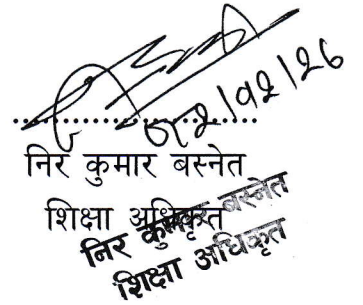 ..........................
निर कुमार बस्नेत
शिक्षा अधिकृत
निर कुमार बस्नेत
शिक्षा अधिकृत